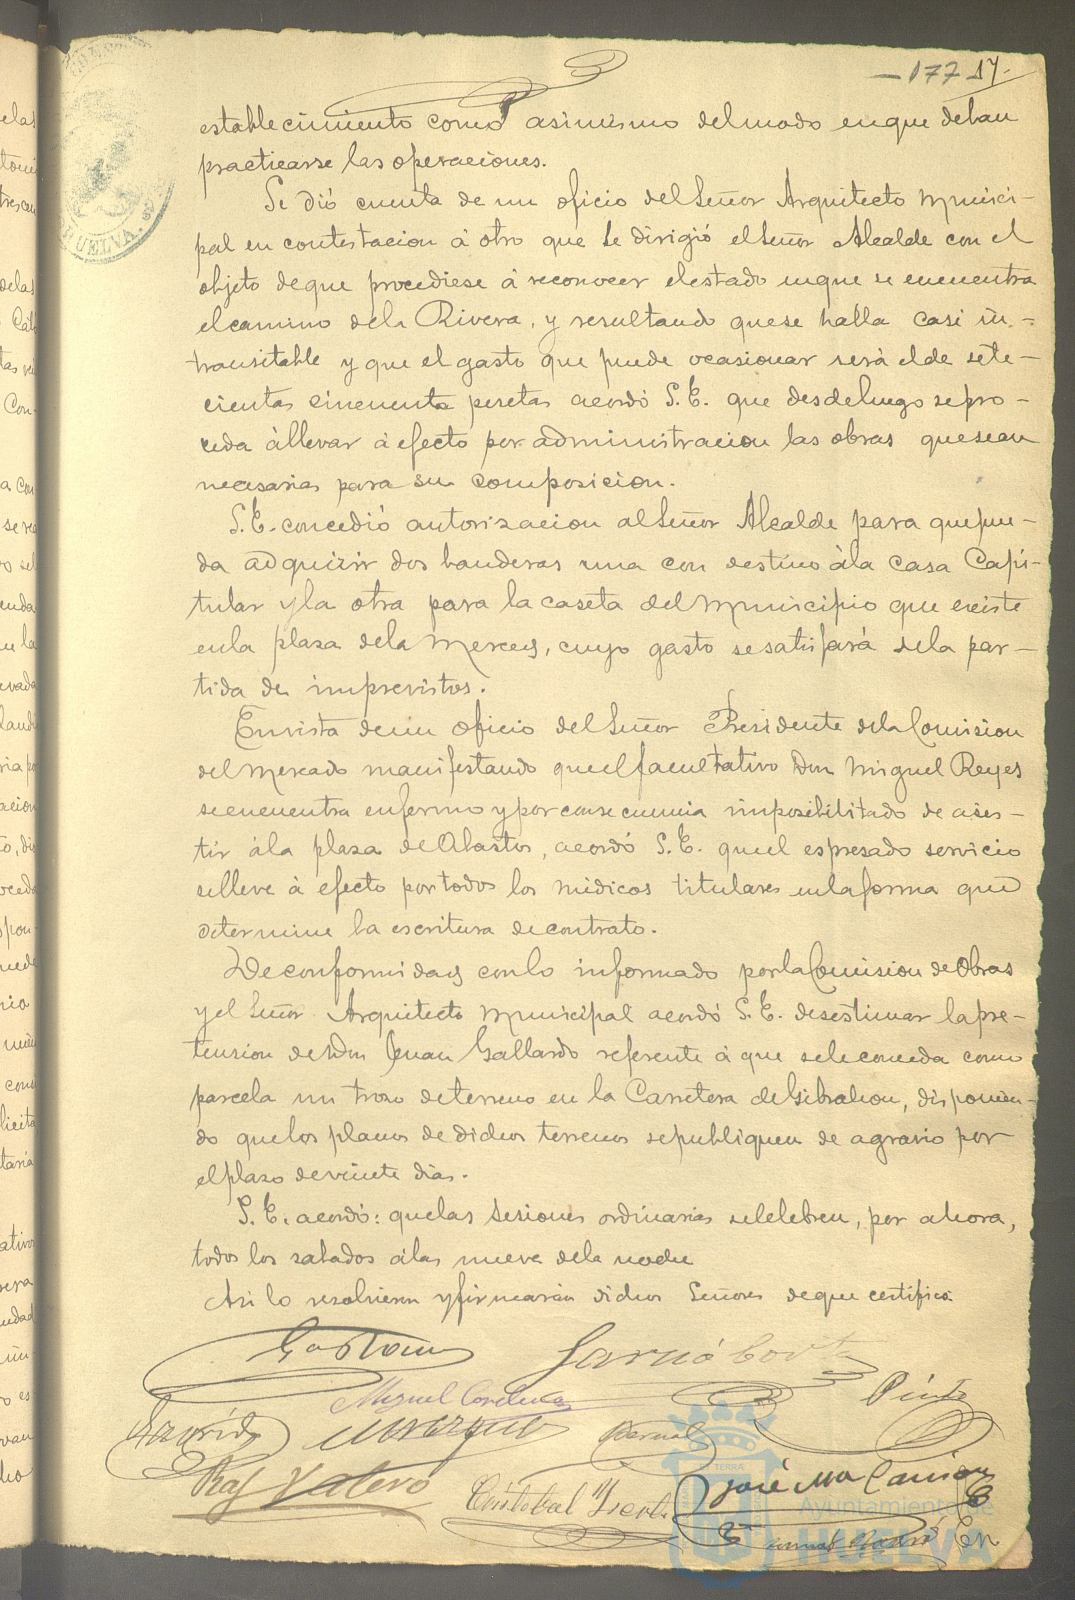 — 177 17.
establecimiento como asimismo del modo en que deban
practicarse las operaciones.
Se dió cuenta de un oficio del Señor Arquitecto Munici-
pal en contestacion á otro que le dirigió el Señor Alcalde con el
objeto de que procediese á reconocer el estado en que se encuentra
el camino de la Rivera, y resultando que se halla casi in-
transitable y que el gasto que puede ocasionar será el de sete-
cientas cincuenta pesetas acordó S.E. que desde luego se pro-
ceda á llevar á efecto por administracion las obras que sean
necesarias para su composicion.
S.E. concedió autorizacion al Señor Alcalde para que pue-
da adquirir dos banderas una con destino á la casa Capi-
tular y la otra para la caseta del Municipio que existe
en la plaza de la Merced, cuyo gasto se satisfará de la par-
tida de imprevistos.
En vista de un oficio del Señor Presidente de la Comision
del Mercado manifestando que el facultativo Don Miguel Reyes
se encuentra enfermo y por consecuencia imposibilitado de asis-
tir á la plaza de Abastos, acordó S.E. que el espresado servicio
se lleve á efecto por todos los médicos titulares en la forma que
determine la escritura de contrato.
De conformidad con lo informado por la Comision de Obras
y el Señor Arquitecto Municipal acordó S.E. desestimar la pre-
tension de Don Juan Gallardo referente á que se le conceda como
parcela un trozo de terreno en la Carretera de Gibraleon, disponien-
do que los planos de dichos terrenos se publiquen de agravio por
el plazo de veinte dias.
S.E. acordó: que las sesiones ordinarias se celebren, por ahora,
todos los sabados á las nueve de la noche
Asi lo resolvieron y firmarán dichos Señores de que certifico
Garnó Cort
Pinto
Raf Valero
José Mª
HUELVA
Ayuntamiento de
HUELVA